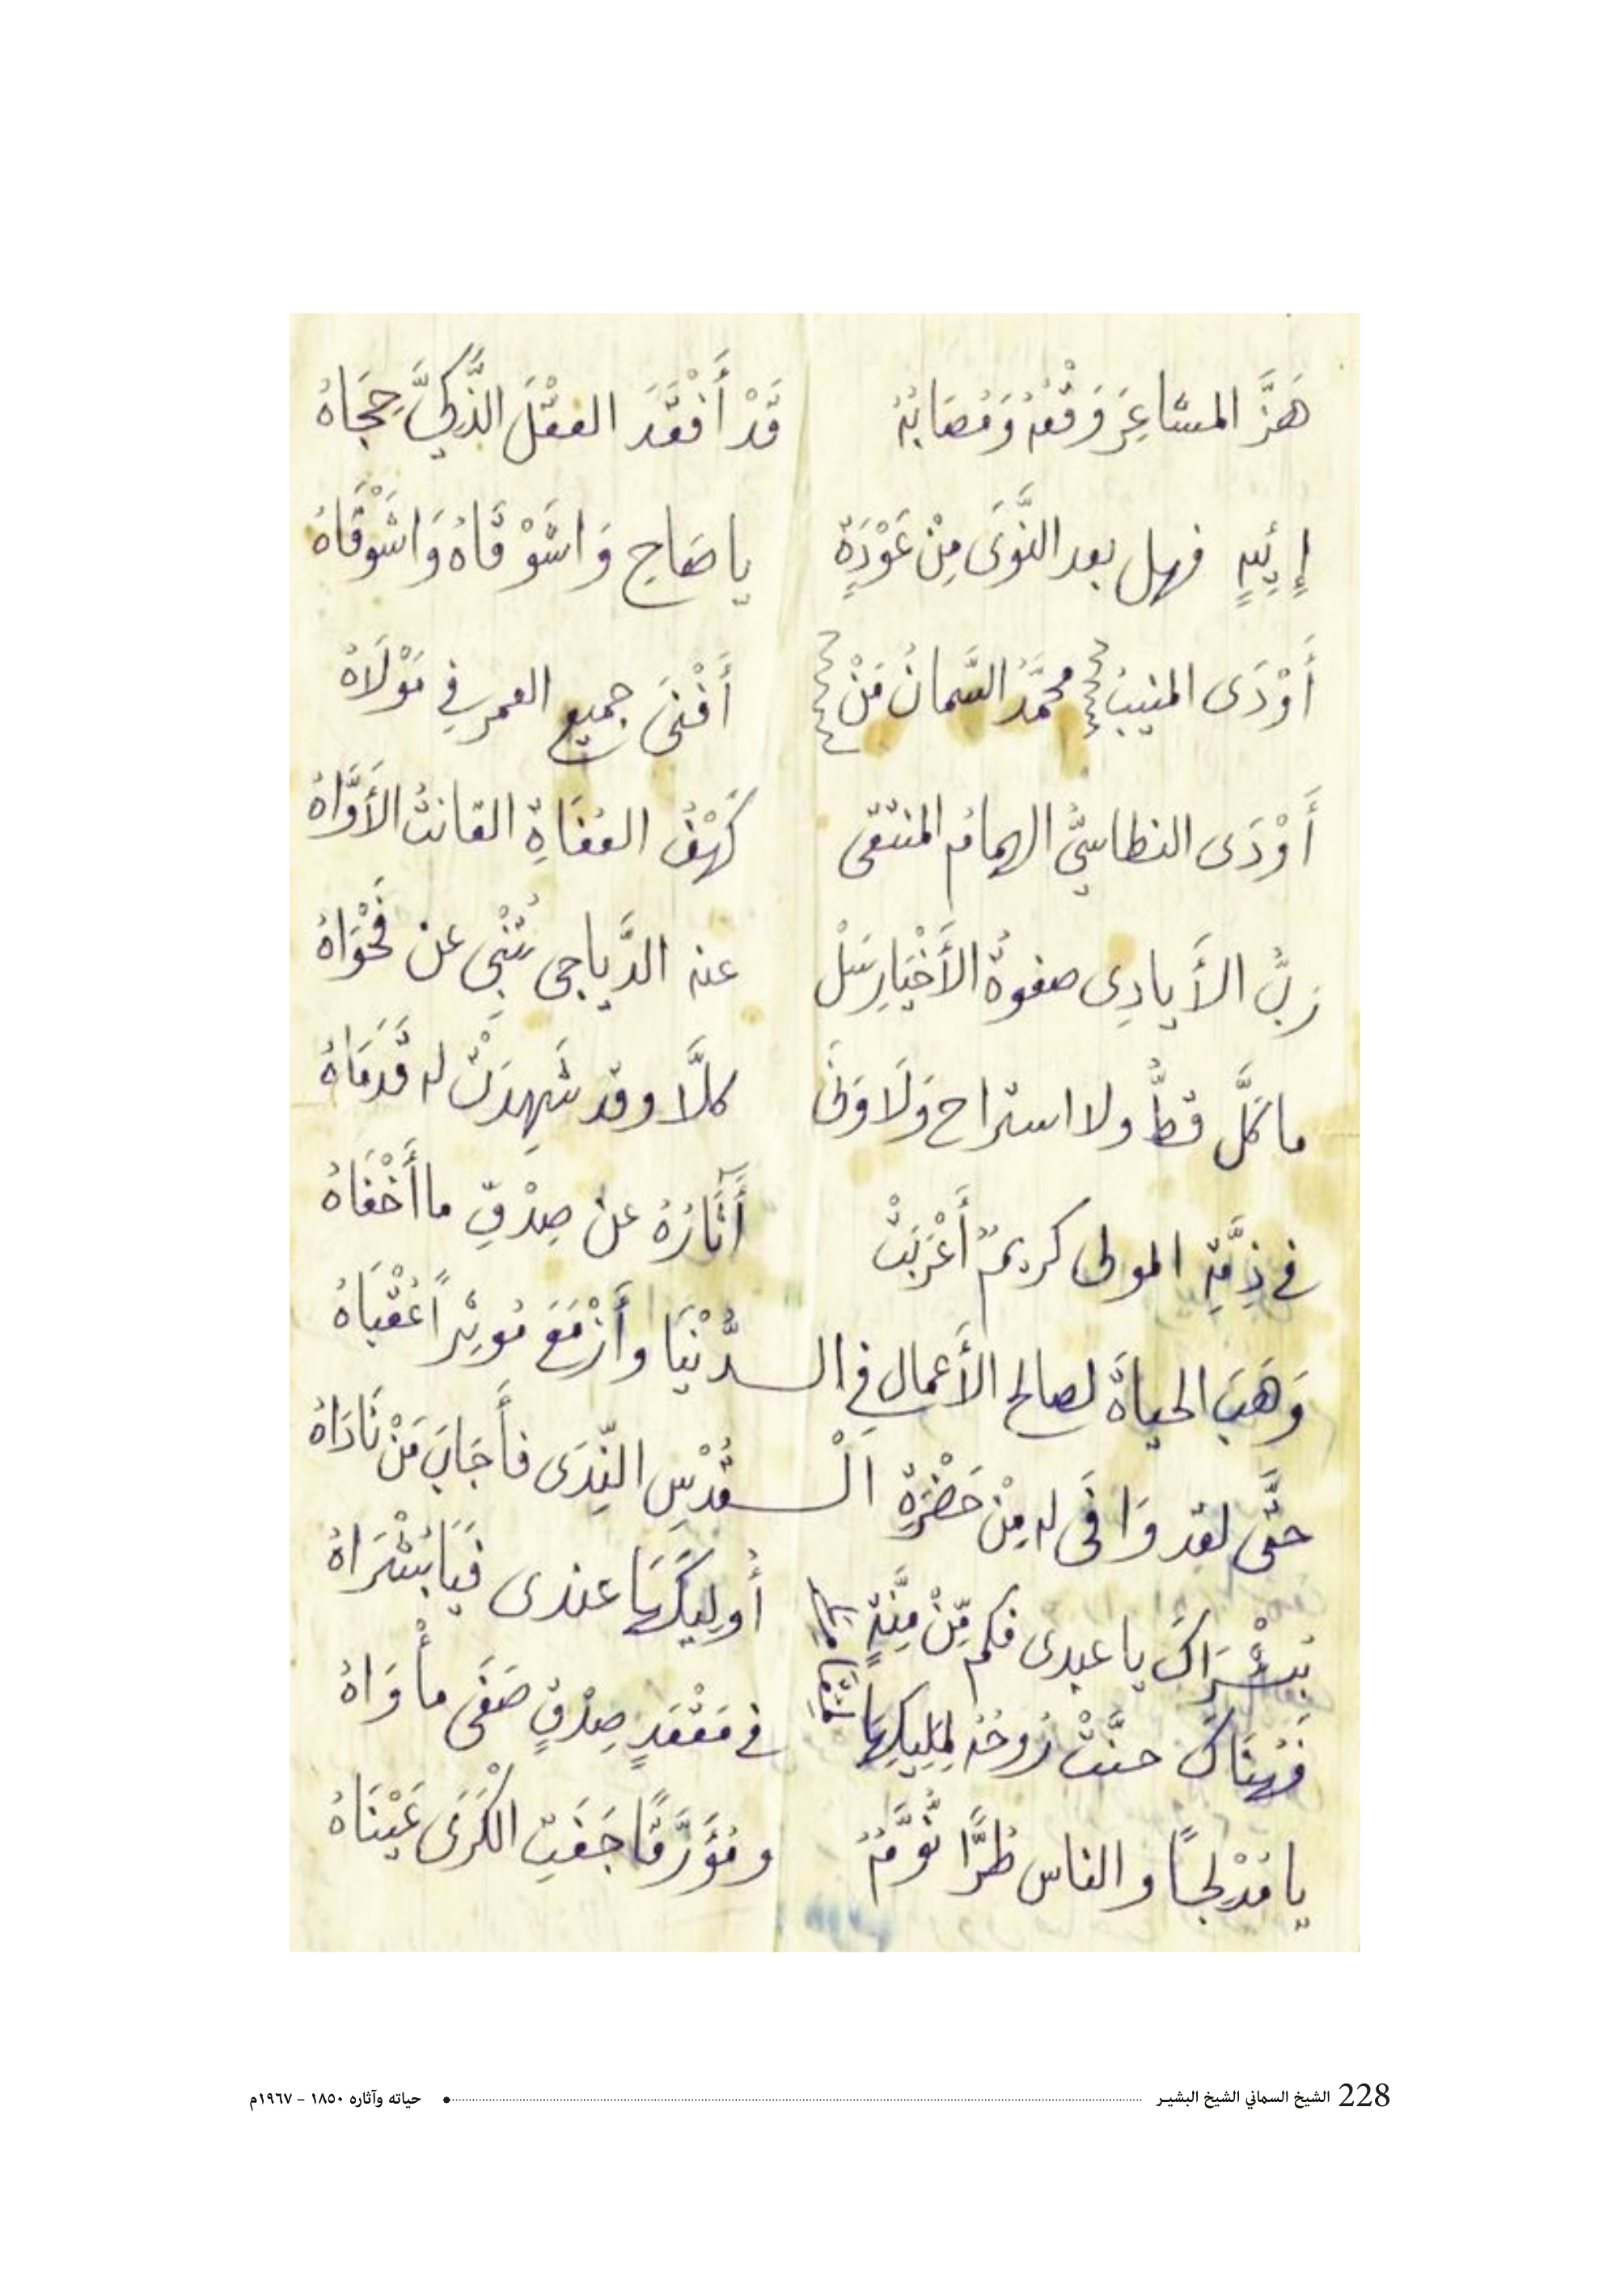 هَزَّ المشاعِرَ وَقْعُهُ وَمُصَابُهُ قَدْ أَفْقَدَ العقْلَ الذَّكِيَّ حِجَاهُ
إِيْهٍ فهل بعد النَّوَى مِنْ عَوْدَةٍ يا صَاحِ وَاشَوْقَاهُ وَاشَوْقَاهُ
أَوْدَى المنيبُ محمَّدُ السَّمانُ مَنْ أَفْنَى جميع العمر في مَوْلَاهُ
أَوْدَى النطاسيُّ الهمامُ المنتقى كَهْفُ العُفَاةِ القانتُ الأَوَّاهُ
رَبُّ الأَيادِى صفوةُ الأَخْيَارِ سَلْ عنه الدَّياجى تُنْبِى عن فَحْوَاهُ
ما كَلَّ قطُّ ولا استراح وَلَا وَنَى كلَّا وقد شَهِدَتْ له قَدَمَاهُ
في ذِمَّةِ المولى كريمٌ أَعْرَبَتْ آثَارُهُ عن صِدْقِ ما أَخْفَاهُ
وَهَبَ الحياةَ لصالح الأَعمالِ في الـدُّنْيَا وأَزْمَعَ مُؤثِراً عُقْبَاهُ
حتَّى لقد وَافَى له مِنْ حَضْرَةِ الْـقُدْسِ النِّدَى فأَجَابَ مَنْ نَادَاهُ
بُشْرَاكَ يا عبدى فكم مِّنْ مِنَّةٍ أُولِيكَهَا عندى فَيَا بُشْرَاهُ
فَهُنَاكَ حنَّتْ رُوحُهُ لمَلِيكِهَا في مَقْعَدٍ صِدْقٍ صَفَى مأْوَاهُ
يا مُدْلِجًا والناس طُرًّا نُوَّمٌ ومُؤَرَّقًا جَفَتِ الْكَرَى عَيْنَاهُ
228 الشيخ السماني الشيخ البشير حياته وآثاره ١٨٥٠ - ١٩٦٧م